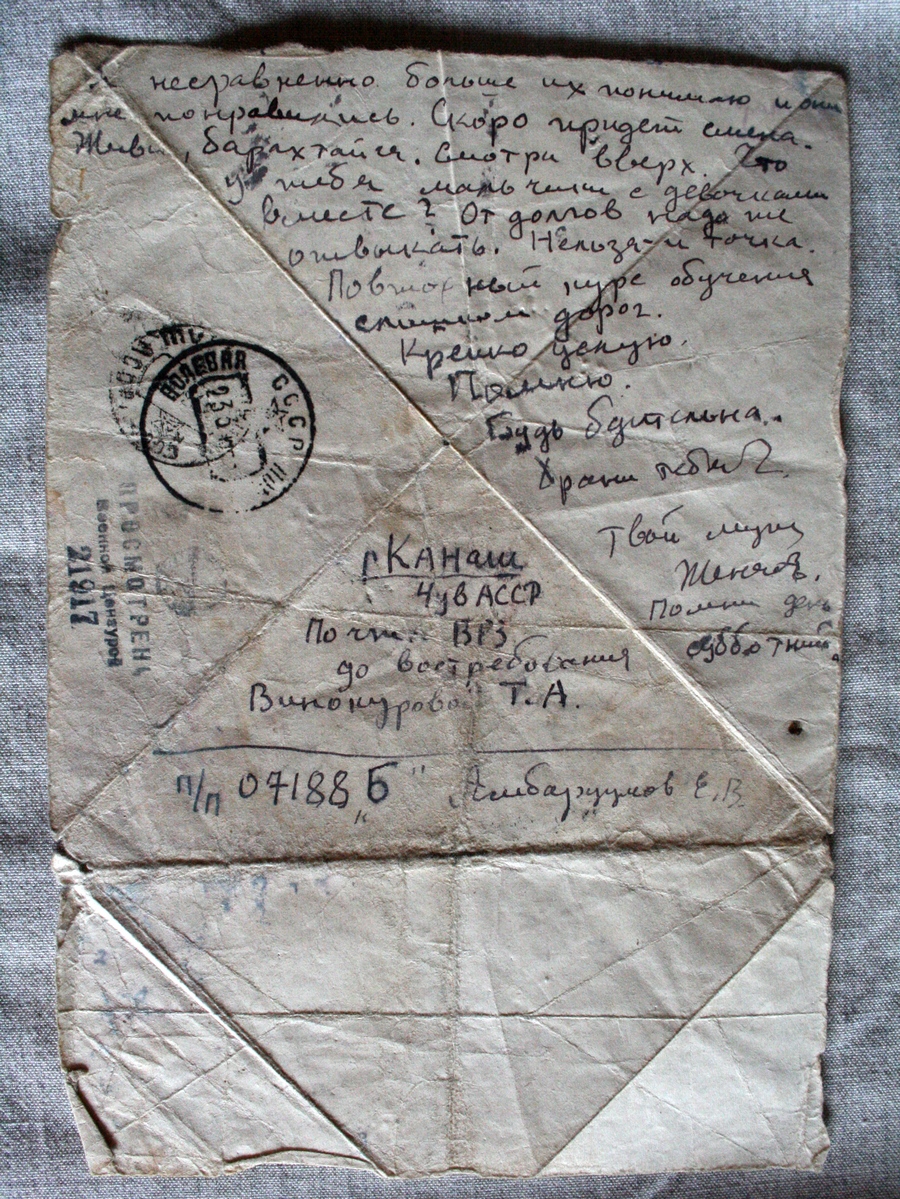 несравненно больше их понимаю и они
мне понравились. Скоро придет смена.
Живи, барахтайся. Смотри вверх. Что
у тебя мальчики с девочками
вместе? От долгов надо же
отвыкать. Нельзя - и точка.
Повторный курс обучения
слишком дорог.
Крепко целую.
Помню.
Будь бдительна.
Храни тебя
Твой муж
Помни день
субботний.
ПОЛЕВАЯ
СССР
ПРОСМОТРЕНО
Военной Цензурой
21917
г КАНАШ
Чув АССР
Почта ВРЗ
до востребования
Винокуровой Т.А.
п/п 07188 „Б" Амбарцумов Е.В.